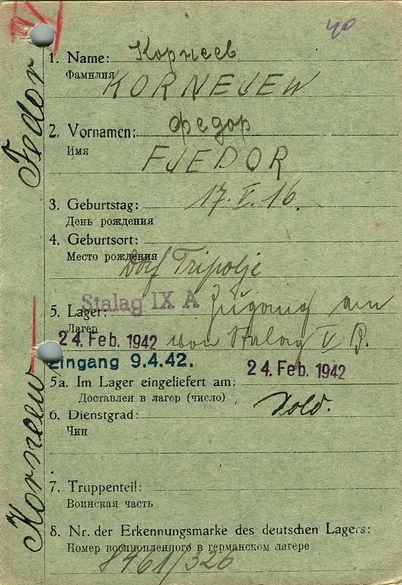 40
1. Name: Корнеев
Фамилия
KORNEJEW
2. Vornamen: Федор
Имя
FJEDOR
3. Geburtstag: 17. I. 16.
День рождения
4. Geburtsort:
Место рождения
Dorf Tripolje
Stalag IX A Zugang am
5. Lager:
Лагерь
24. Feb. 1942 von Stalag V B.
Eingang 9.4.42. 24. Feb. 1942
5a. Im Lager eingeliefert am:
Доставлен в лагер (число)
6. Dienstgrad: Sold.
Чин
7. Truppenteil:
Воинская часть
8. Nr. der Erkennungsmarke des deutschen Lagers:
Номер военнопленного в германском лагере
/326
Korneew Fedor